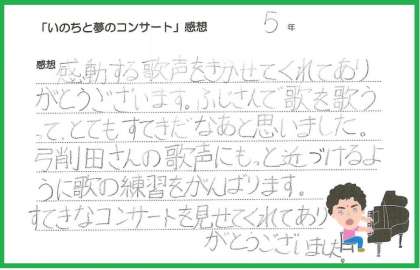 「いのちと夢のコンサート」感想 5 年
感想 感動する歌声をきかせてくれてあり
がとうございます。ふじさんで歌を歌う
って、とてもすてきだなあと思いました。
弓削田さんの歌声にもっと近づけるよ
うに歌の練習をがんばります。
すてきなコンサートを見せてくれてあり
がとうございました。